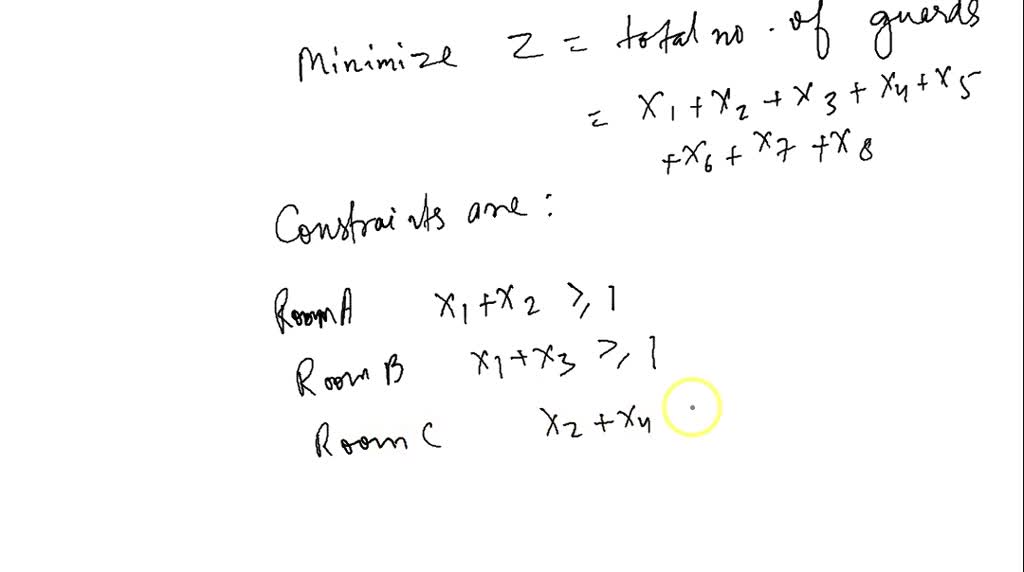 Minimize Z = total no. of guards
= x1 + x2 + x3 + x4 + x5
+ x6 + x7 + x8
Constraints are:
Room A x1 + x2 ≥ 1
Room B x1 + x3 ≥ 1
Room C x2 + x4